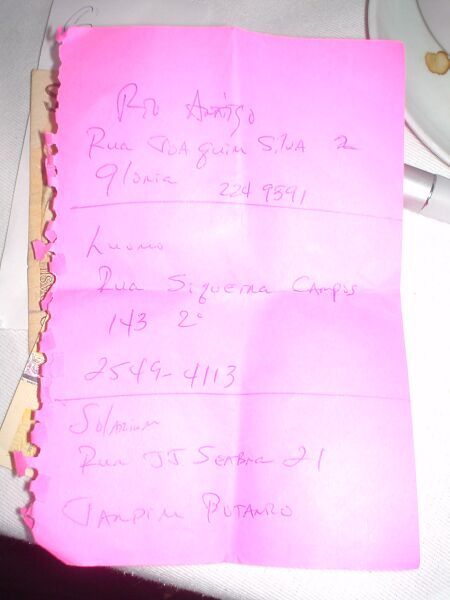 Rio Antigo
Rua Joaquim Silva 2
Gloria 224 9591
Luomo
Rua Siqueira Campos
143 2º
2549-4113
Solarium
Rua JJ Seabra 21
Jardim Botanico